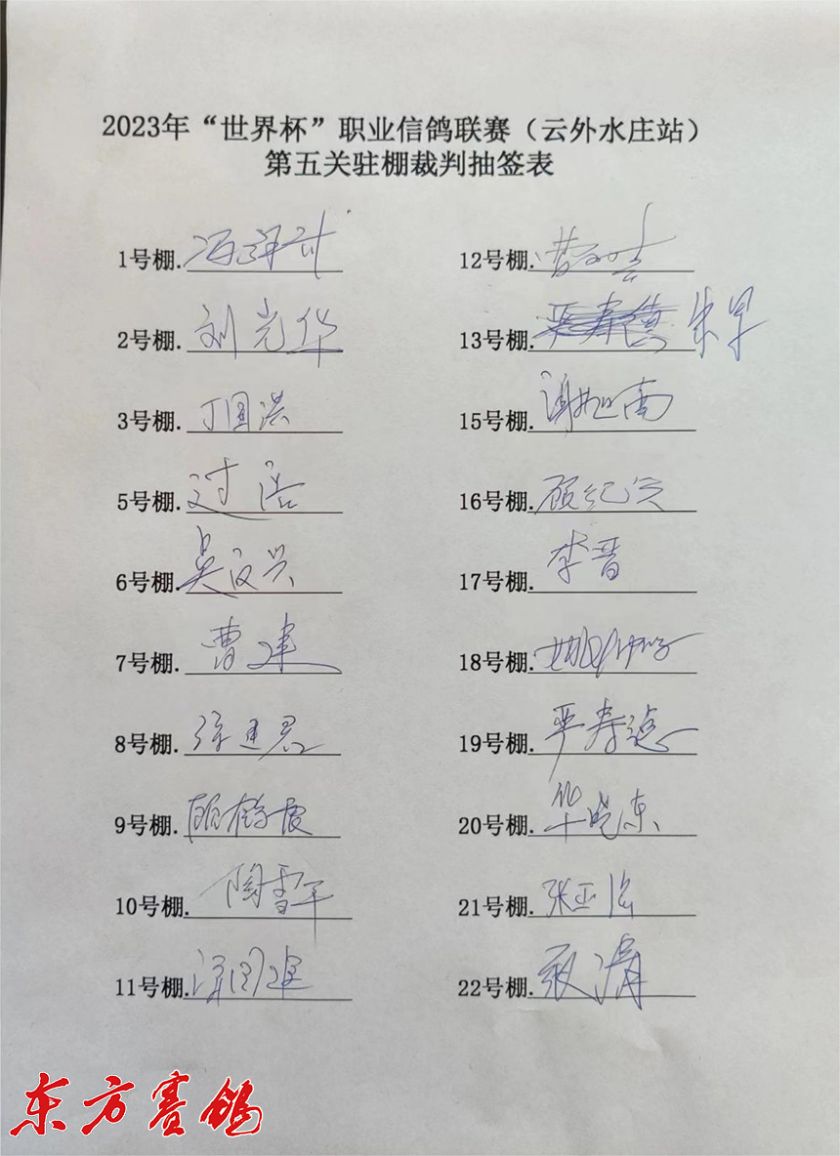 2023年“世界杯”职业信鸽联赛（云外水庄站）
第五关驻棚裁判抽签表
1号棚.
2号棚.刘光华
3号棚.丁国洪
5号棚.过浩
6号棚.吴汉兴
7号棚.曹建
8号棚.徐建君
9号棚.
10号棚.陶雪平
11号棚.
12号棚.
13号棚.严寿德
15号棚.
16号棚.顾纪兴
17号棚.李晋
18号棚.
19号棚.严寿德
20号棚.华晓东
21号棚.张正浩
22号棚.
东方赛鸽